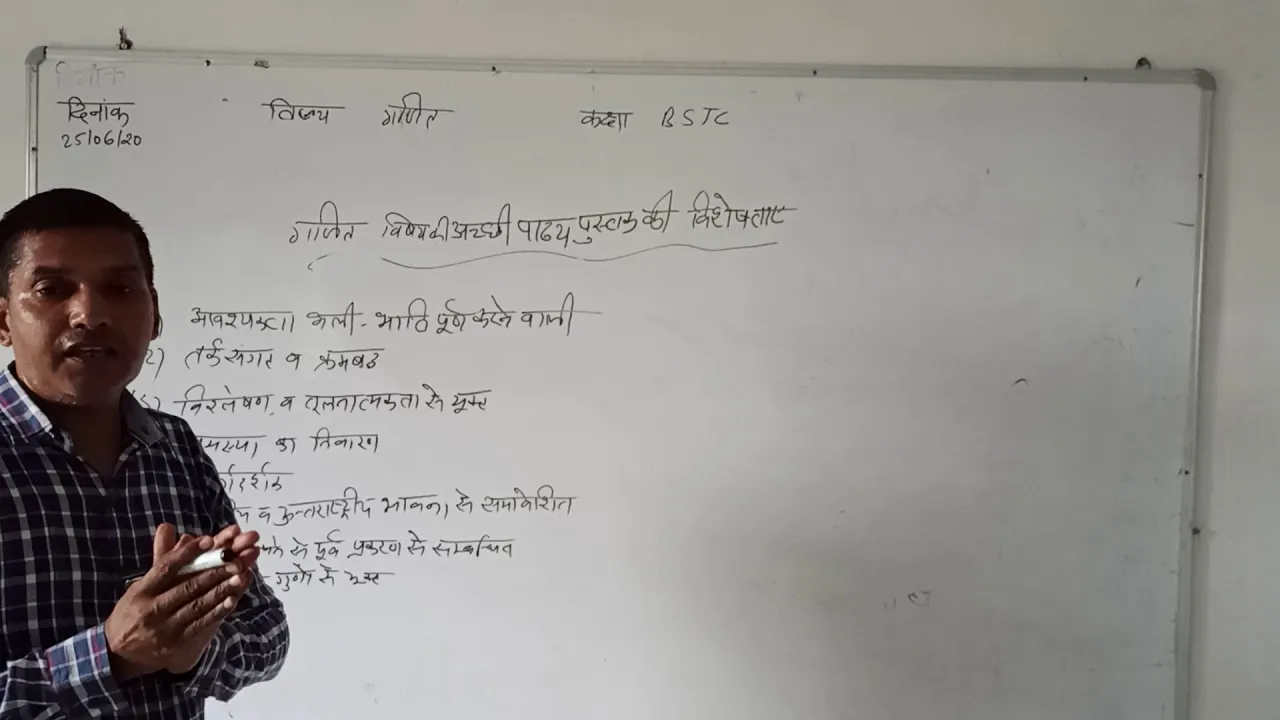 दिनांक
दिनांक विषय गणित कक्षा BSTC
25/06/20
गणित विषय की अच्छी पाठ्य पुस्तक की विशेषताए
आवश्यकता भली - भाति पूर्ण करने वाली
2) तर्कसंगत व क्रमबद्ध
विश्लेषण व तुलनात्मकता से युक्त
मस्या का निवारण
र्गदर्शक
य व अन्तराष्ट्रीय भावना से समावेशित
के पूर्व प्रकरण से सम्बन्धित
गुणो से युक्त